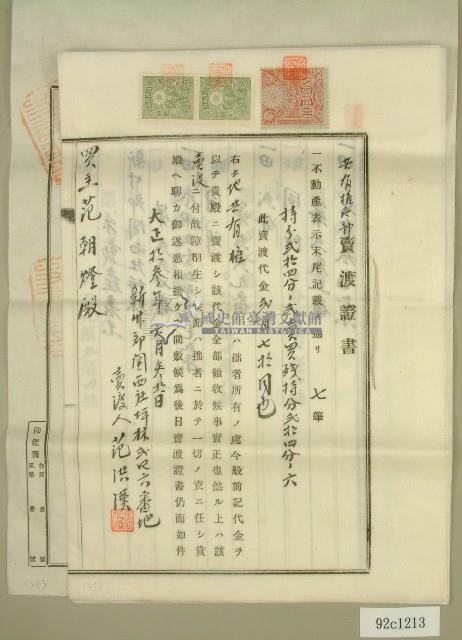 共有権持分賣渡證書
一不動産表示末尾記載ノ通リ 七筆
持分弐拾四分ノ弐賣買残持分弐拾四分ノ六
此賣渡代金弐百七拾円也
右土地共有権ハ拙者所有ノ處今般前記代金ヲ
以テ貴殿ニ賣渡シ該代金全部領收候事實正也然ル上ハ該
賣渡ニ付故障相生シ候節ハ拙者ニ於テ一切ノ責ニ任シ貴
殿ヘ聊カ御迷惑相掛ケ申間敷候為後日賣渡證書仍而如件
大正拾参年
新竹郡関西庄坪林弐四六番地
賣渡人 范洪漢
買主 范朝燈殿
國史館臺灣文獻館
TAIWAN HISTORICA
印鑑簿
92c1213